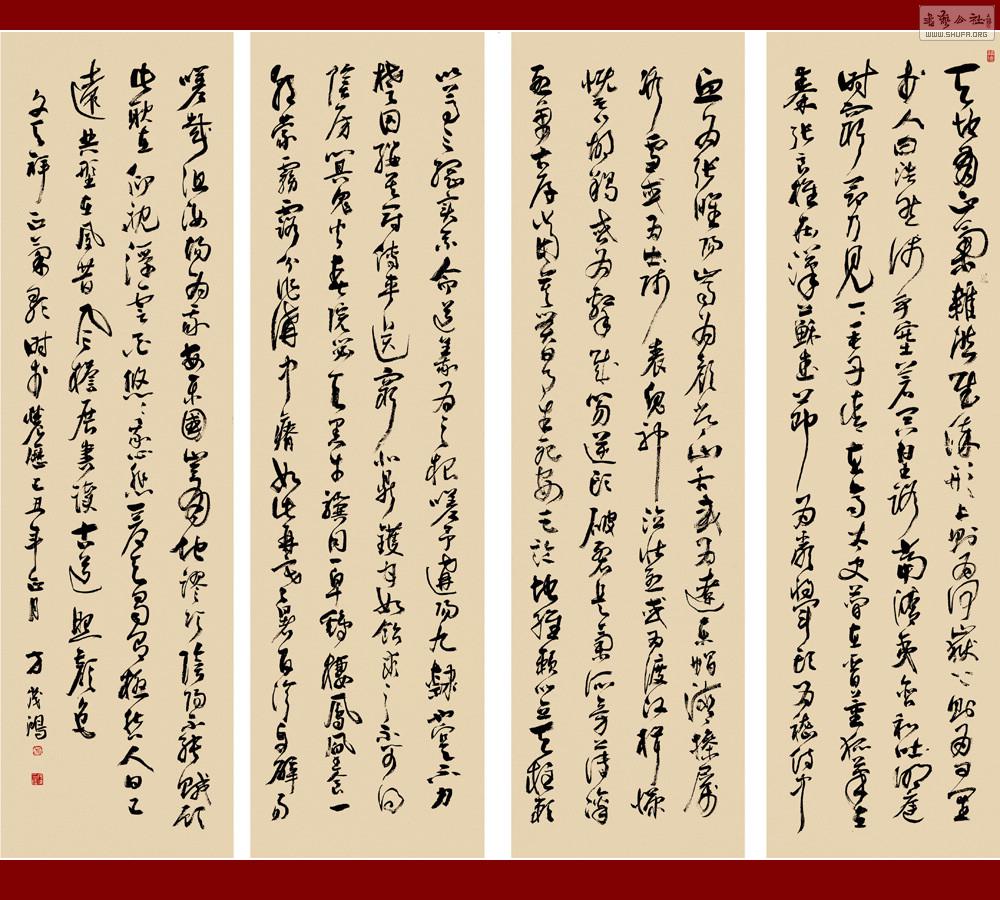 天地有正氣雜然賦流形下則為河嶽上則為日星
於人曰浩然沛乎塞蒼冥皇路當清夷含和吐明庭
时窮節乃見一一垂丹青在齊太史簡在晉董狐筆在
秦張良椎在漢蘇武節為嚴將軍頭為嵇侍中
血為張睢陽齒為顏常山舌或為遼東帽清操厲
冰雪或為出師表鬼神泣壯烈或為渡江楫慷
慨吞胡羯或為擊賊笏逆頭破裂是氣所旁薄凜
烈萬古存當其貫日月生死安足論地維賴以立天柱賴
以尊三綱實系命道義為之根嗟予遘陽九隸也實不力
楚囚纓其冠傳車送窮北鼎鑊甘如飴求之不可得
陰房闃鬼火春院閟天黑牛驥同一皁雞棲鳳凰食一
朝蒙霧露分作溝中瘠如此再寒暑百沴自辟易
嗟哉沮洳場為我安樂國豈有他謬巧陰陽不能賊顧
此耿耿在仰視浮雲白悠悠我心悲蒼天曷有極哲人日已
遠典型在夙昔風檐展書讀古道照顏色
文天祥正氣歌时於農歷己丑年正月方茂鴻
書藝公社
WWW.SHUFA.ORG